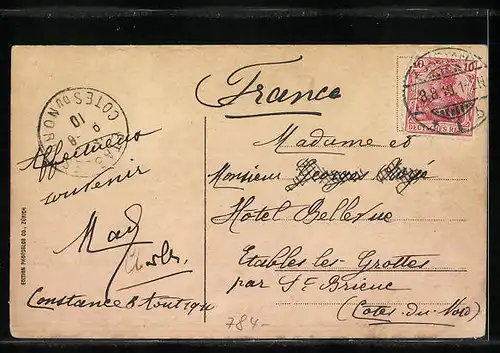 France
10
DEUTSCHES REICH
COTES DU NORD
10
Madame et
Monsieur Georges
Hotel Bellevue
Etables les Grottes
par St Brieuc
(Cotes-du-Nord)
Affectueux
souvenir
Mad
Charles
Constance 8 Aout 1910
784-
EDITION PHOTOGLOB CO., ZÜRICH